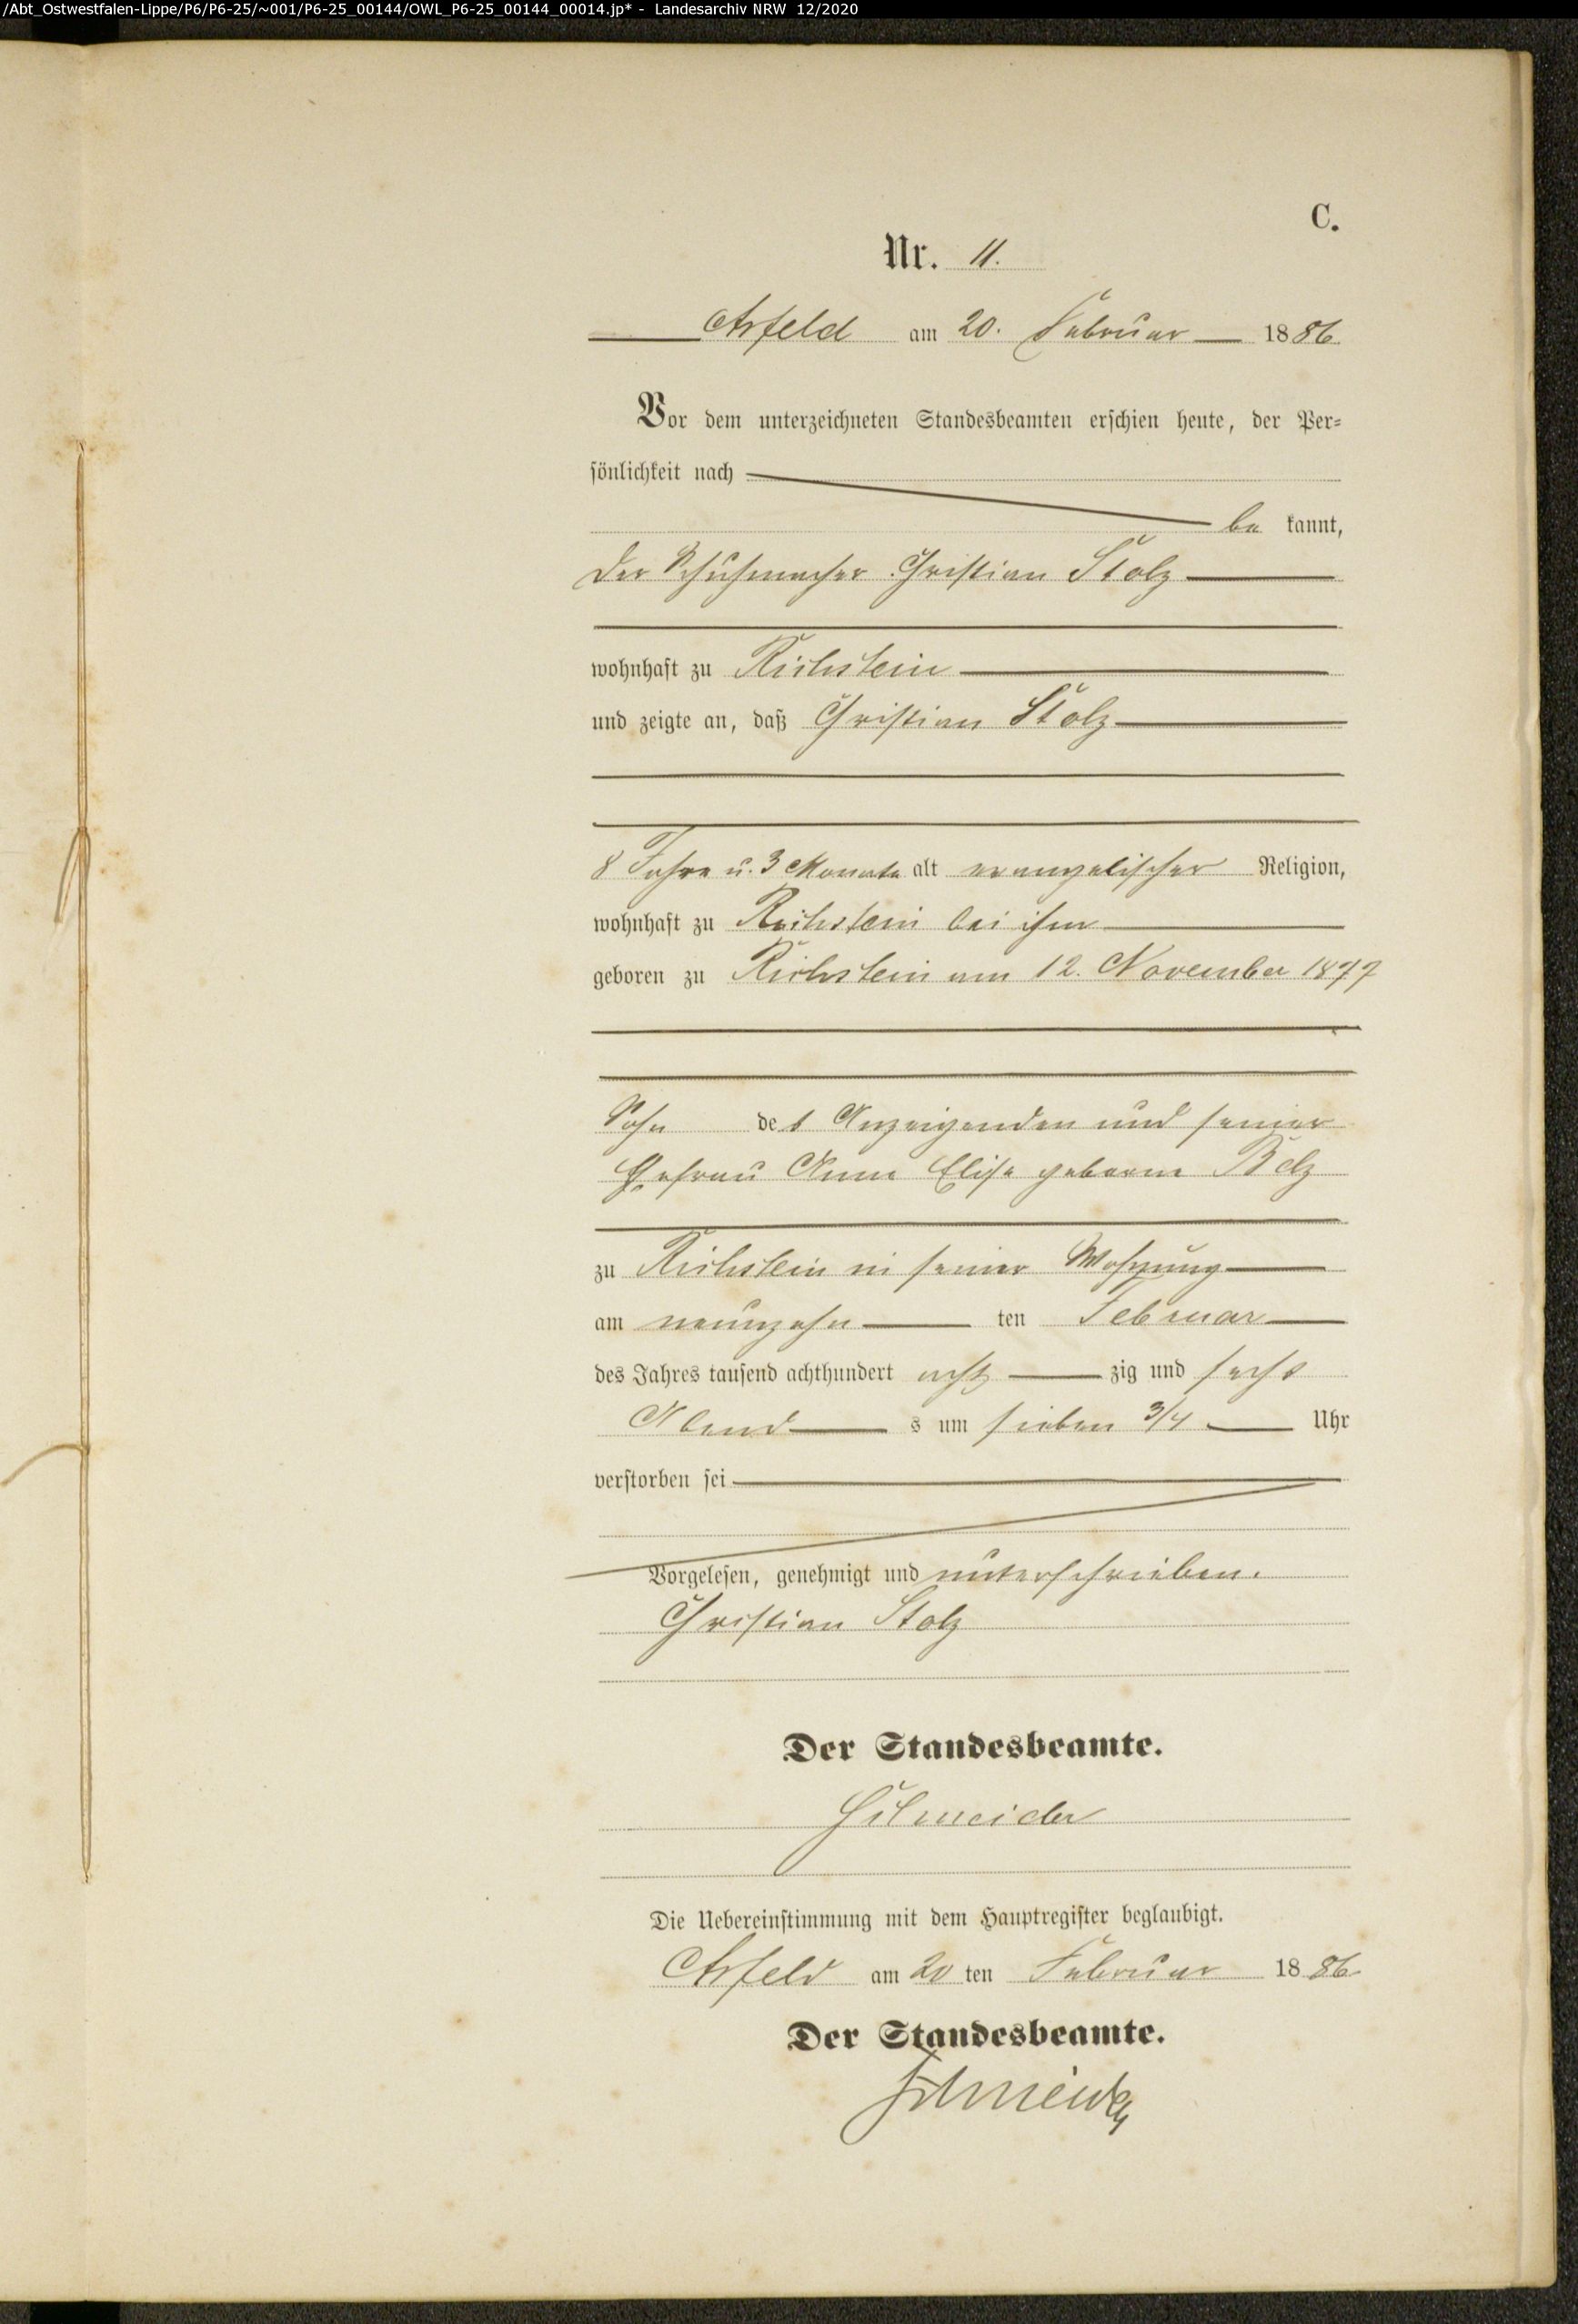 /Abt_Ostwestfalen-Lippe/P6/P6-25/~001/P6-25_00144/OWL_P6-25_00144_00014.jp* - Landesarchiv NRW 12/2020
C.
Nr. 11.
Arfeld am 20. Februar 1886.
Vor dem unterzeichneten Standesbeamten erschien heute, der Per-
sönlichkeit nach
be kannt,
der Schuhmacher Christian Stolz
wohnhaft zu Richstein
und zeigte an, daß Christian Stolz
8 Jahre u. 3 Monate alt evangelischer Religion,
wohnhaft zu Richstein bei ihm
geboren zu Richstein am 12. November 1877
Sohn des Anzeigenden und seiner
Ehefrau Anna Elise geborne Belz
zu Richstein in seiner Wohnung
am neunzehn ten Februar
des Jahres tausend achthundert acht zig und sechs
Abend s um sieben 3/4 Uhr
verstorben sei
Vorgelesen, genehmigt und unterschrieben.
Christian Stolz
Der Standesbeamte.
Schneider
Die Uebereinstimmung mit dem Hauptregister beglaubigt.
Arfeld am 20 ten Februar 1886
Der Standesbeamte.
Schneider